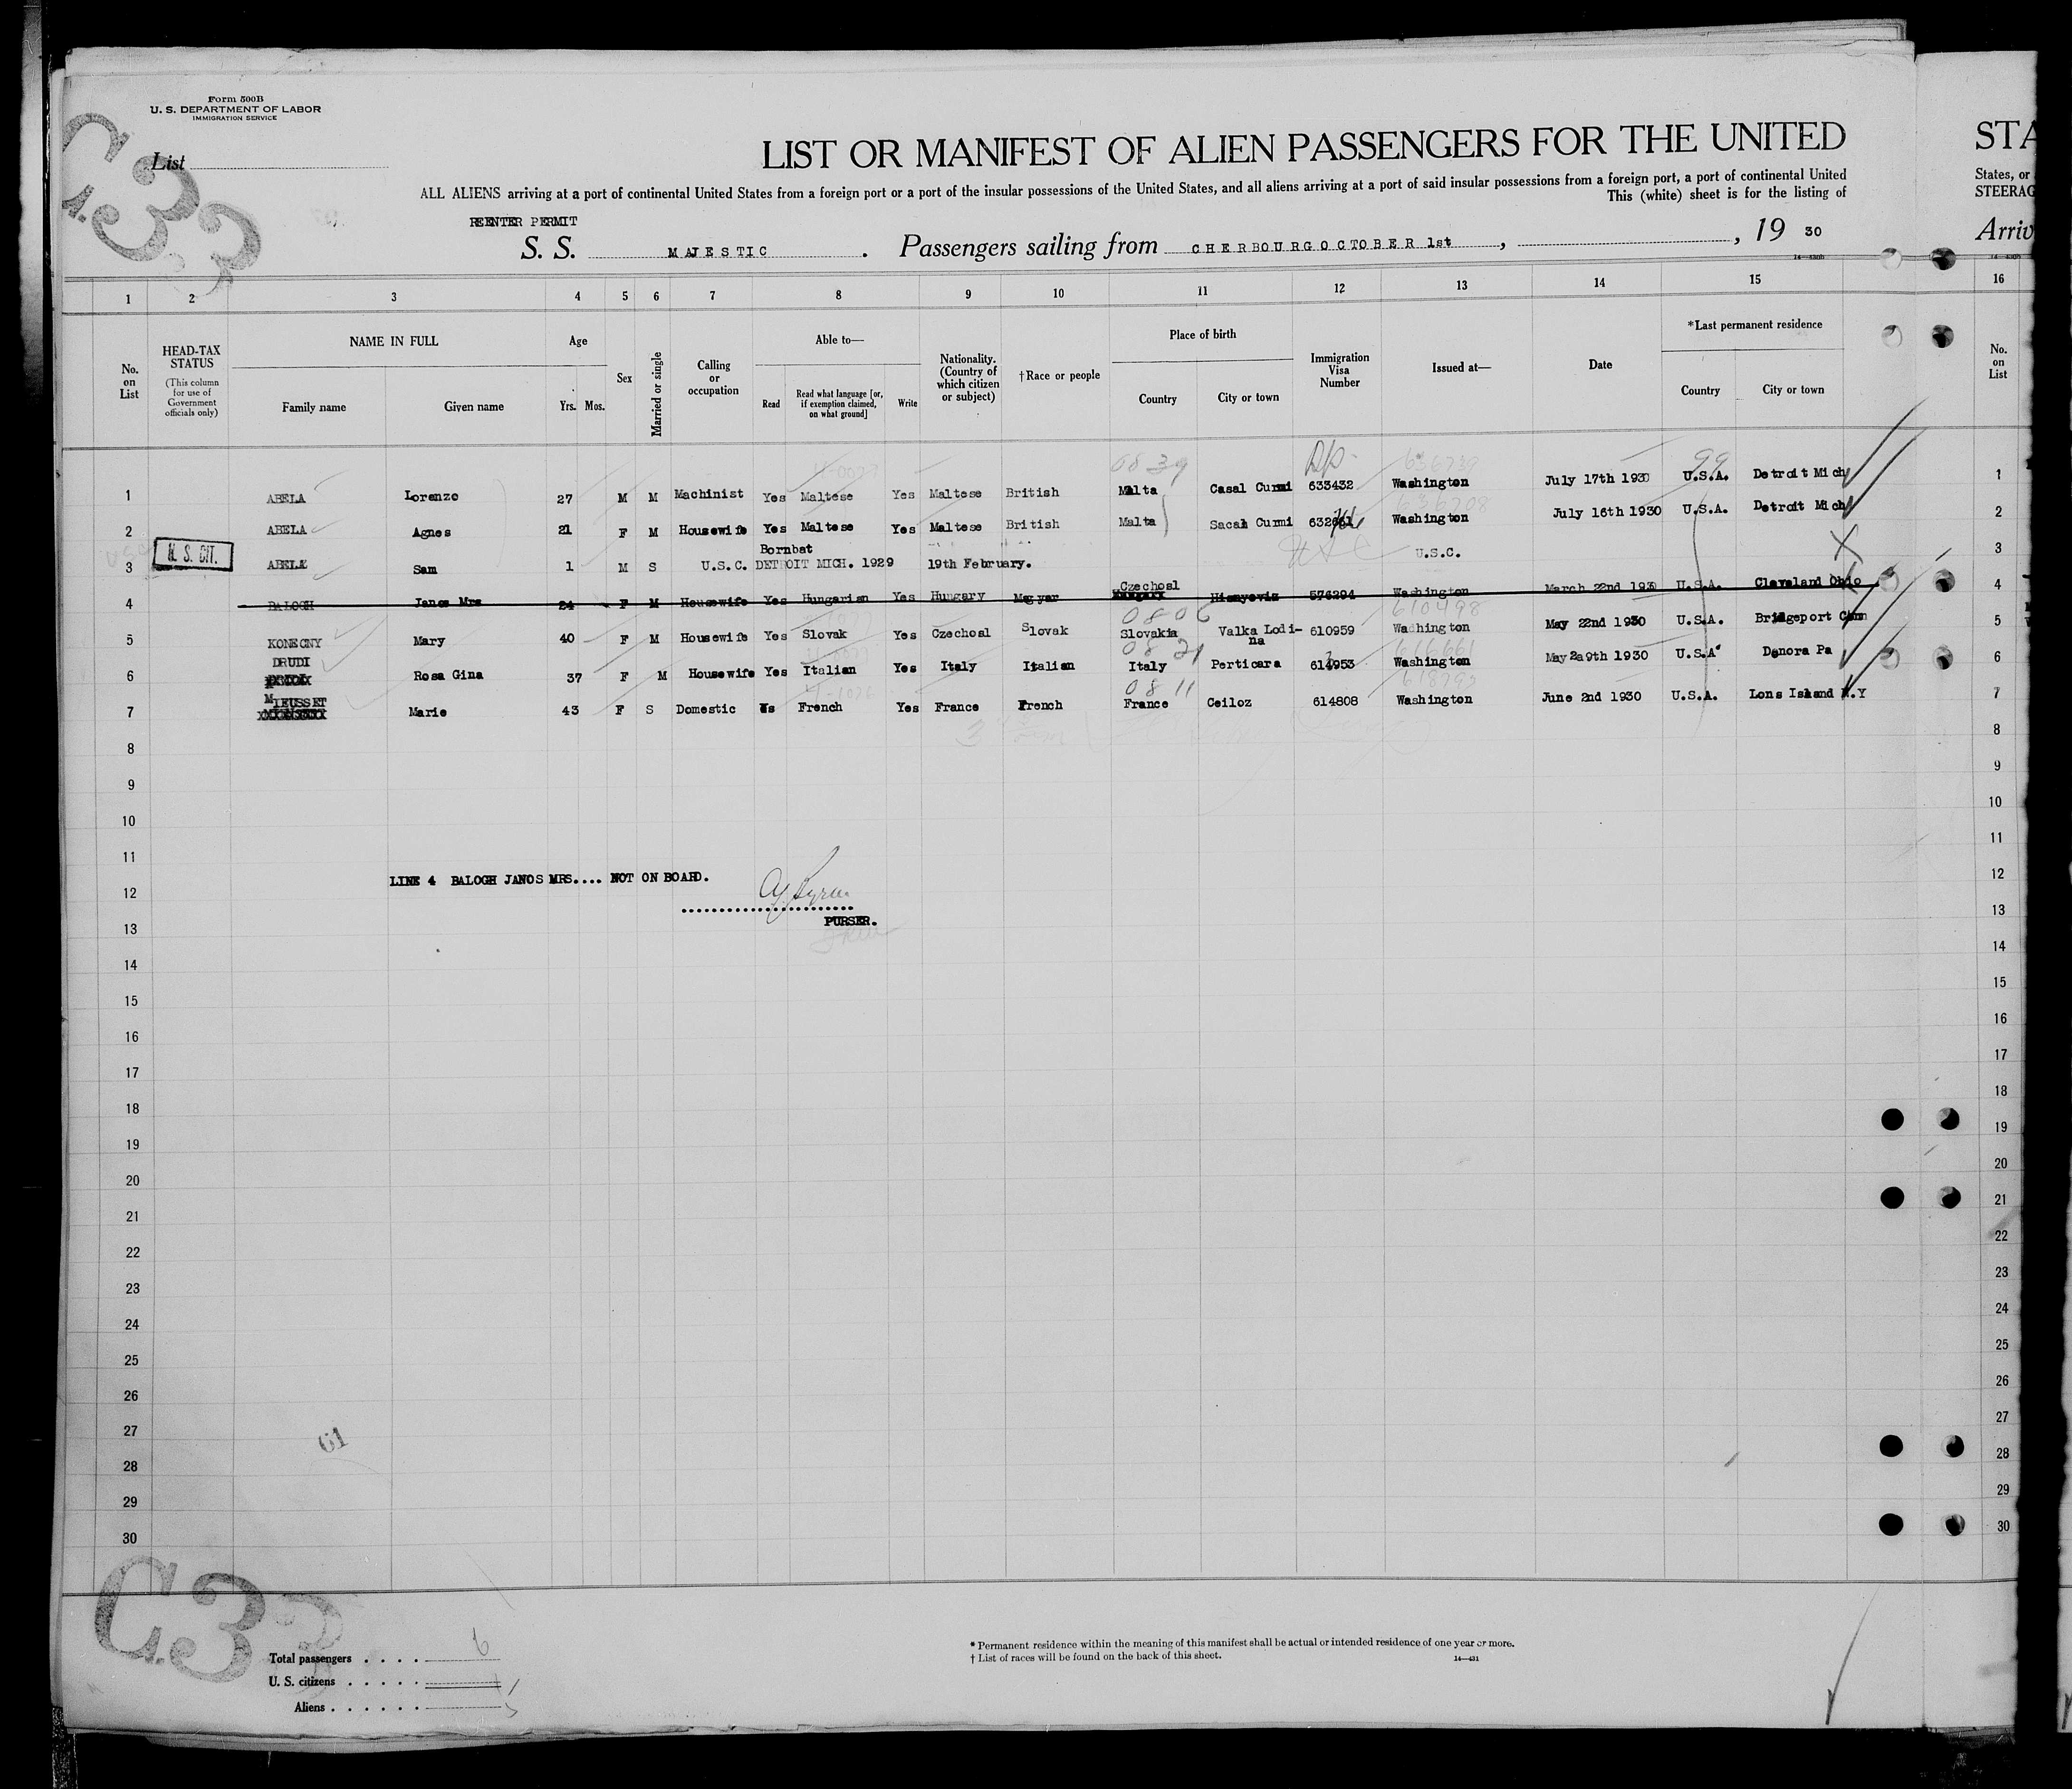 Form 500B
U. S. DEPARTMENT OF LABOR
IMMIGRATION SERVICE
List
C33
LIST OR MANIFEST OF ALIEN PASSENGERS FOR THE UNITED STA
ALL ALIENS arriving at a port of continental United States from a foreign port or a port of the insular possessions of the United States, and all aliens arriving at a port of said insular possessions from a foreign port, a port of continental United States, or
This (white) sheet is for the listing of STEERAG
REENTER PERMIT
S. S. MAJESTIC . Passengers sailing from CHERBOURG OCTOBER 1st , , 19 30 Arriv
1 2 3 4 5 6 7 8 9 10 11 12 13 14 15 16
No. on List
HEAD-TAX STATUS
(This column for use of Government officials only)
NAME IN FULL
Family name Given name
Age
Yrs. Mos.
Sex
Married or single
Calling or occupation
Able to—
Read Read what language [or, if exemption claimed, on what ground] Write
Nationality. (Country of which citizen or subject)
†Race or people
Place of birth
Country City or town
Immigration Visa Number
Issued at—
Date
*Last permanent residence
Country City or town
No. on List
0839 636739 99
1 ABELA Lorenzo 27 M M Machinist Yes Maltese Yes Maltese British Malta Casal Curmi 633432 Washington July 17th 1930 U.S.A. Detroit Mich 1
2 ABELA Agnes 21 F M Housewife Yes Maltese Yes Maltese British Malta Sacal Curmi Washington July 16th 1930 U.S.A. Detroit Mich 2
U. S. CIT.
Bornbat
3 ABELA Sam 1 M S U.S.C. DETROIT MICH. 1929 19th February. USC U.S.C. 3
Czechosl
4 BALOGH Janos Mrs 24 F M Housewife Yes Hungarian Yes Hungary Magyar Hungary 576294 Washington March 22nd 1930 U.S.A. Cleveland Ohio 4
0806 610498
5 KONECNY Mary 40 F M Housewife Yes Slovak Yes Czechosl Slovak Slovakia Valka Lodi-na 610959 Washington May 22nd 1930 U.S.A. Bridgeport Conn 5
DRUDI
0821 616661
6 Rosa Gina 37 F M Housewife Yes Italian Yes Italy Italian Italy Perticara 614953 Washington May 2a9th 1930 U.S.A. Donora Pa 6
MIEUSSET
0811
7 Marie 43 F S Domestic French Yes France French France Ceiloz 614808 Washington June 2nd 1930 U.S.A. Lons Island N.Y 7
8 8
9 9
10 10
11 11
LINE 4 BALOGH JANOS MRS.... NOT ON BOARD.
12 12
PURSER.
13 13
14 14
15 15
16 16
17 17
18 18
19 19
20 20
21 21
22 22
23 23
24 24
25 25
26 26
27 27
61
28 28
29 29
30 30
C33
Total passengers . . . . 6
U. S. citizens . . . . . 1
Aliens . . . . . . 5
* Permanent residence within the meaning of this manifest shall be actual or intended residence of one year or more.
† List of races will be found on the back of this sheet. 14—431